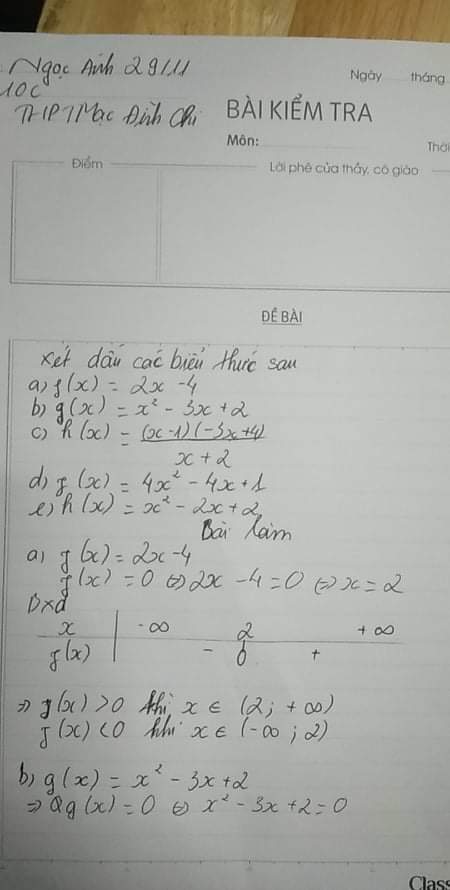 Ngọc Ánh 29/11
10C
THPT Mạc Đĩnh Chi
Ngày tháng
BÀI KIỂM TRA
Môn:
Thời
Điểm
Lời phê của thầy, cô giáo
ĐỀ BÀI
Xét dấu các biểu thức sau
a) f(x) = 2x - 4
b) g(x) = x² - 3x + 2
c) h(x) = (x-1)(-3x+4)
x + 2
d) f(x) = 4x² - 4x + 1
e) h(x) = x² - 2x + 2
Bài làm
a) f(x) = 2x - 4
f(x) = 0 ⇔ 2x - 4 = 0 ⇔ x = 2
Bxd
x -∞ 2 +∞
f(x) - 0 +
⇒ f(x) > 0 khi x ∈ (2; +∞)
f(x) < 0 khi x ∈ (-∞; 2)
b) g(x) = x² - 3x + 2
⇒ g(x) = 0 ⇔ x² - 3x + 2 = 0
Class